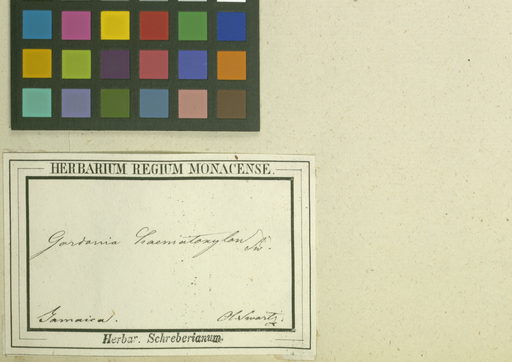 HERBARIUM REGIUM MONACENSE.
Gordonia haematoxylon Sw.
Jamaica. Ol. Swartz.
Herbar. Schreberianum.